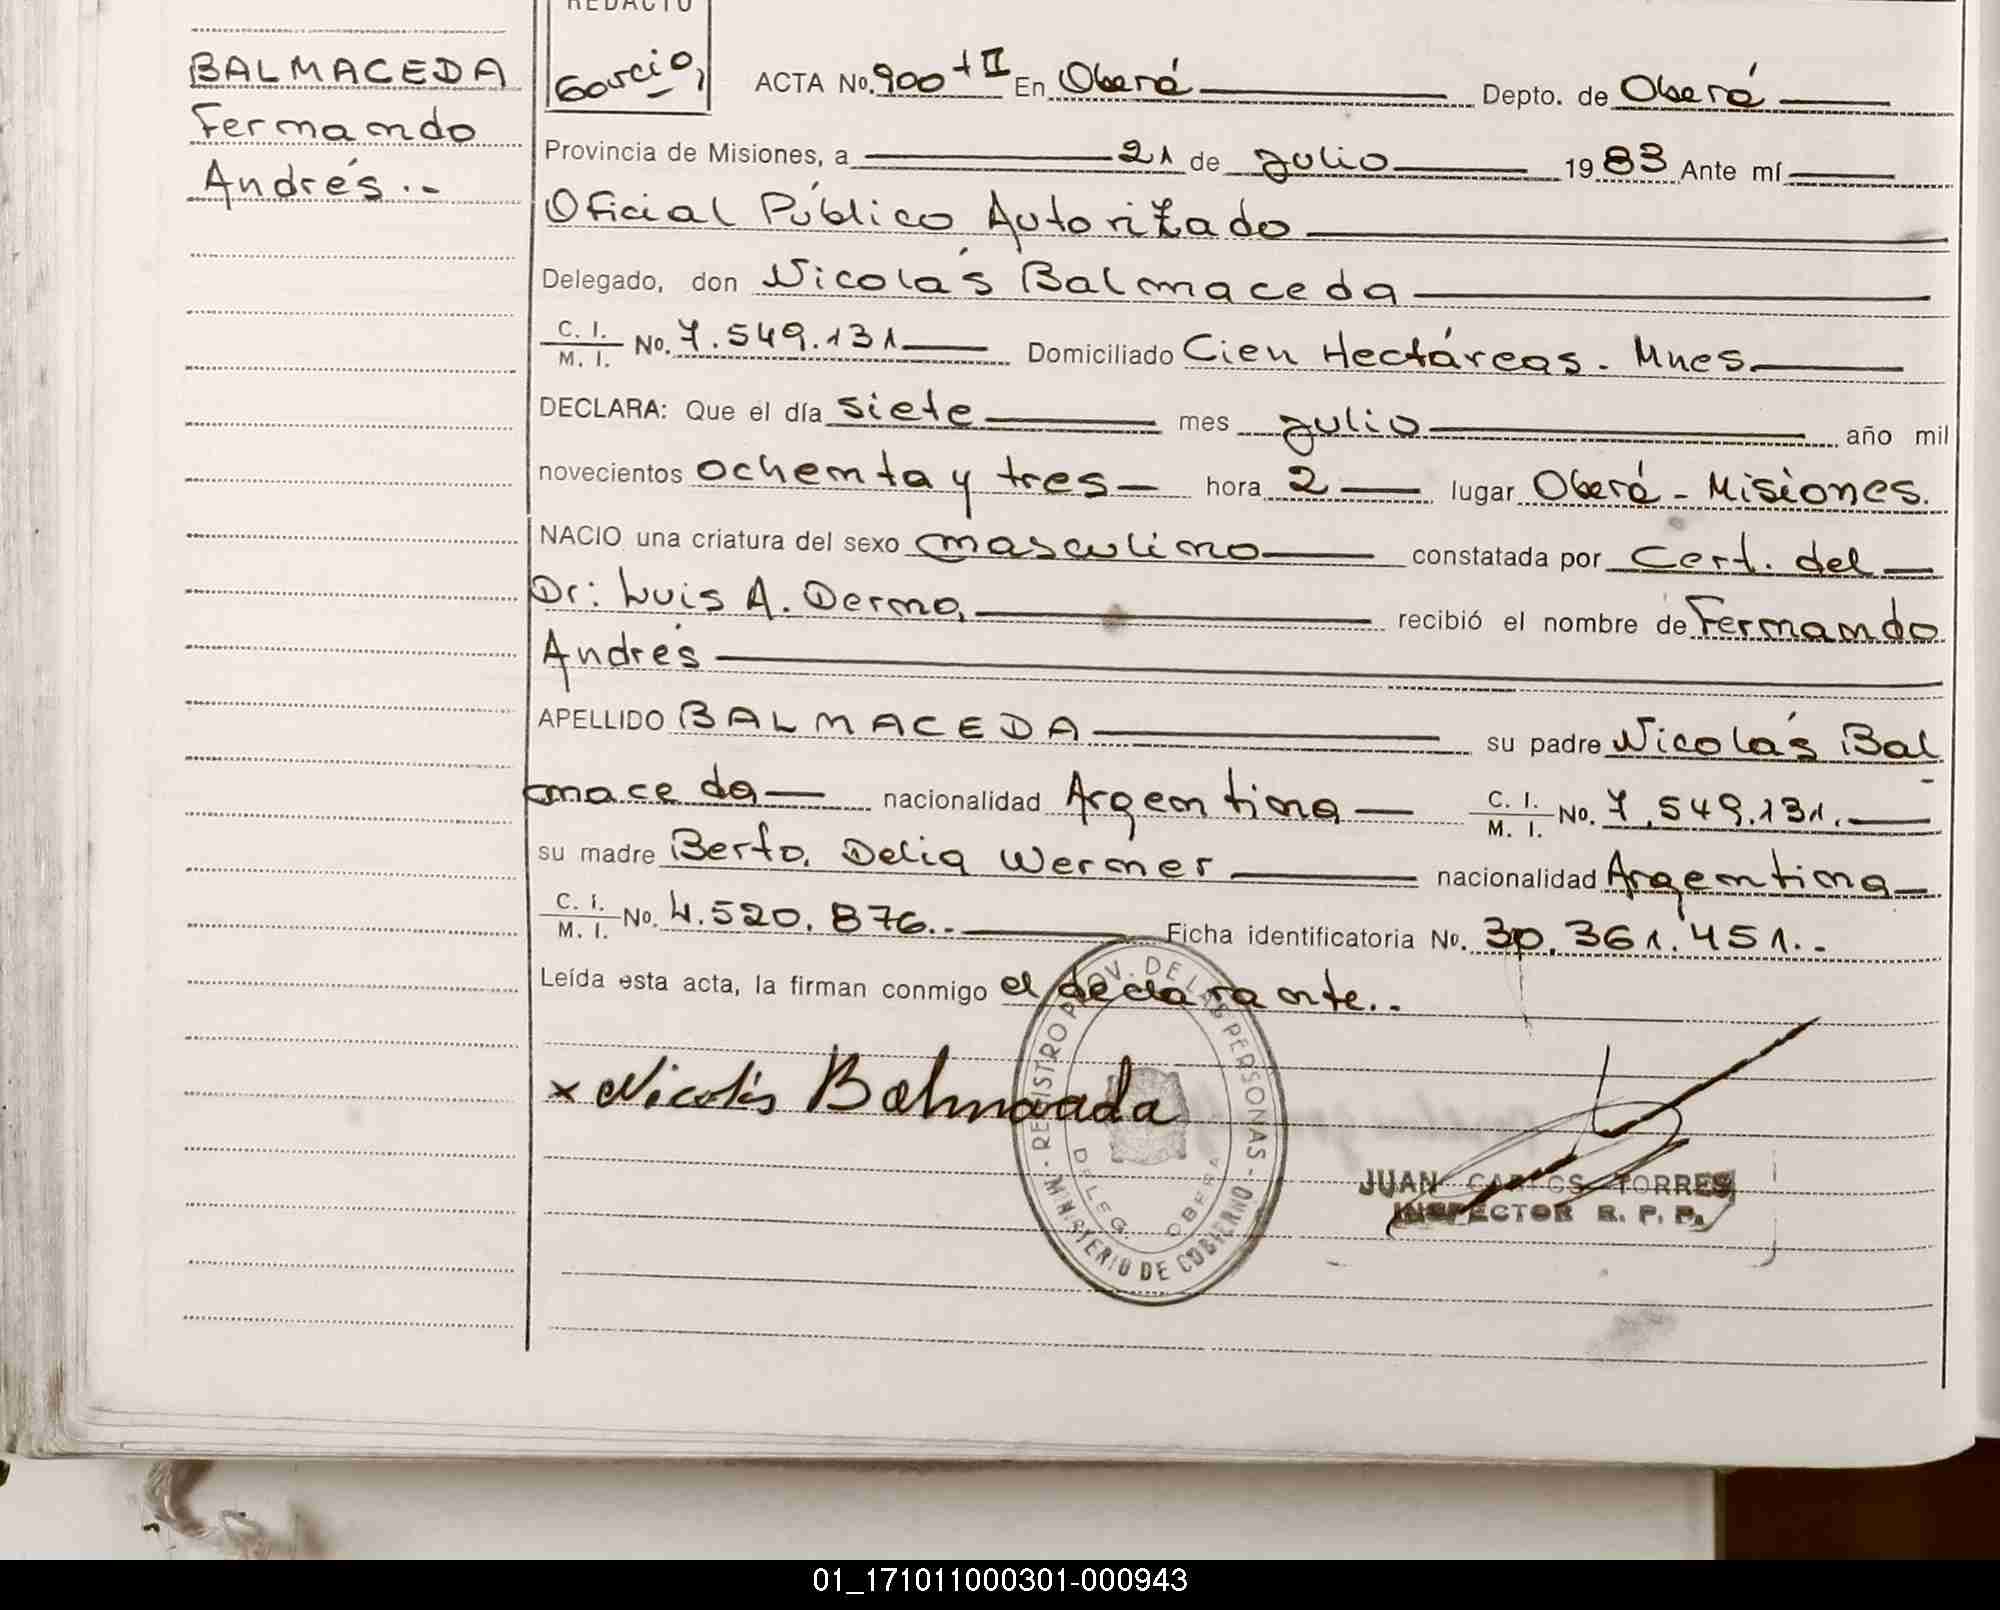 BALMACEDA
Fernando
Andrés.-
REDACTO
García,
ACTA No. 900 tII En Oberá Depto. de Oberá
Provincia de Misiones, a 21 de julio 1983 Ante mí
Oficial Público Autorizado
Delegado, don Nicolás Balmaceda
C. I. / M. I. No. 7.549.131 Domiciliado Cien Hectáreas. Mnes
DECLARA: Que el día siete mes julio año mil
novecientos ochenta y tres hora 2 lugar Oberá - Misiones.
NACIO una criatura del sexo masculino constatada por Cert. del
Dr: Luis A. Derna, recibió el nombre de Fernando
Andrés
APELLIDO BALMACEDA su padre Nicolás Bal
maceda nacionalidad Argentina C. I. / M. I. No. 7.549.131.
su madre Berta Delia Werner nacionalidad Argentina
C. I. / M. I. No. 4.520.876.- Ficha identificatoria No. 30.361.451.-
Leída esta acta, la firman conmigo el declarante.-
x Nicolás Balmaceda
REGISTRO PROV. DE LAS PERSONAS - MINISTERIO DE GOBIERNO -
DELEG. OBERA
JUAN CARLOS TORRES
INSPECTOR R. P. P.
01_171011000301-000943